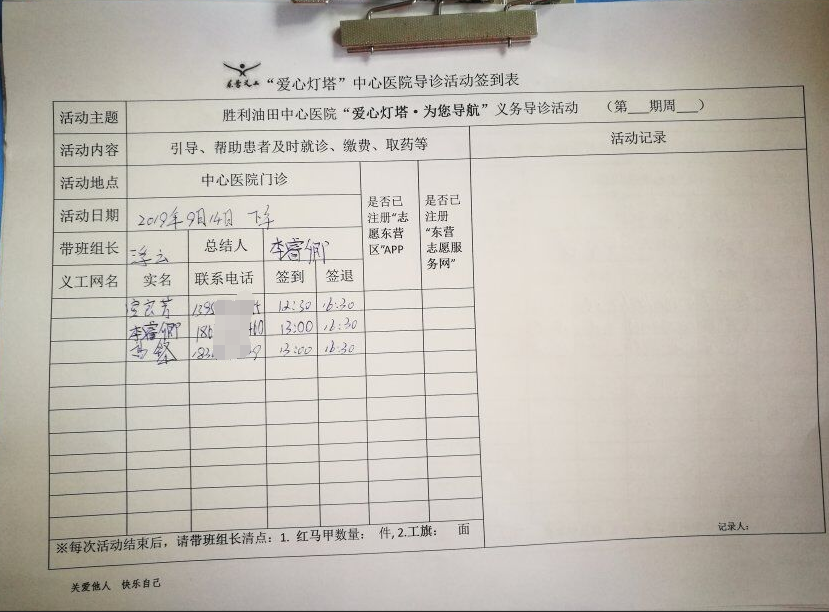 东营义工 “爱心灯塔”中心医院导诊活动签到表
活动主题 胜利油田中心医院“爱心灯塔·为您导航”义务导诊活动 （第___期周___）
活动内容 引导、帮助患者及时就诊、缴费、取药等 活动记录
活动地点 中心医院门诊 是否已注册“志愿东营区”APP 是否已注册“东营志愿服务网”
活动日期 2019年9月14日 下午
带班组长 浮云 总结人 李睿
义工网名 实名 联系电话 签到 签退
12:30 16:30
李睿 13:00 16:30
13:00 16:30
※每次活动结束后，请带班组长清点：1. 红马甲数量： 件, 2.工旗： 面
记录人：
关爱他人 快乐自己